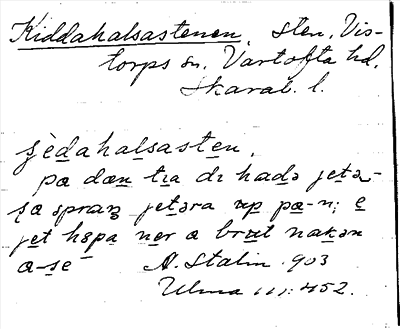 Kiddahalsastenen, sten, Vis-
torps sn. Vartofta hd.
Skarab. l.
ʂèdahalsasten,
pa dæn tia dɩ hadə jetə-
jetəra up pa-n; e
jet hɵpa ner a brøt nakən
a-se A. Stalin 903
Ulma 111:452.